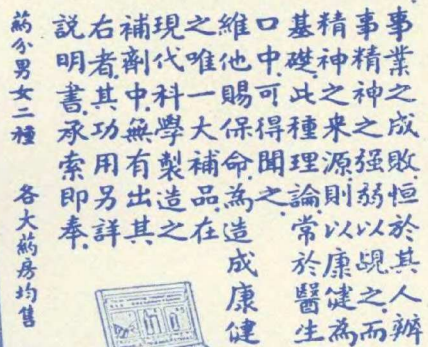 事業之成敗恒於其人辦
事精神之强弱以覘之而
精神之来源則以康健為
基礎此種理論常於醫生
口中可得聞之
維他賜保命為造成康健
之唯一大補品在
現代科學製造之
補劑中無有出其
右者其功用另詳
説明書承索即奉
葯分男女二種 各大葯房均售